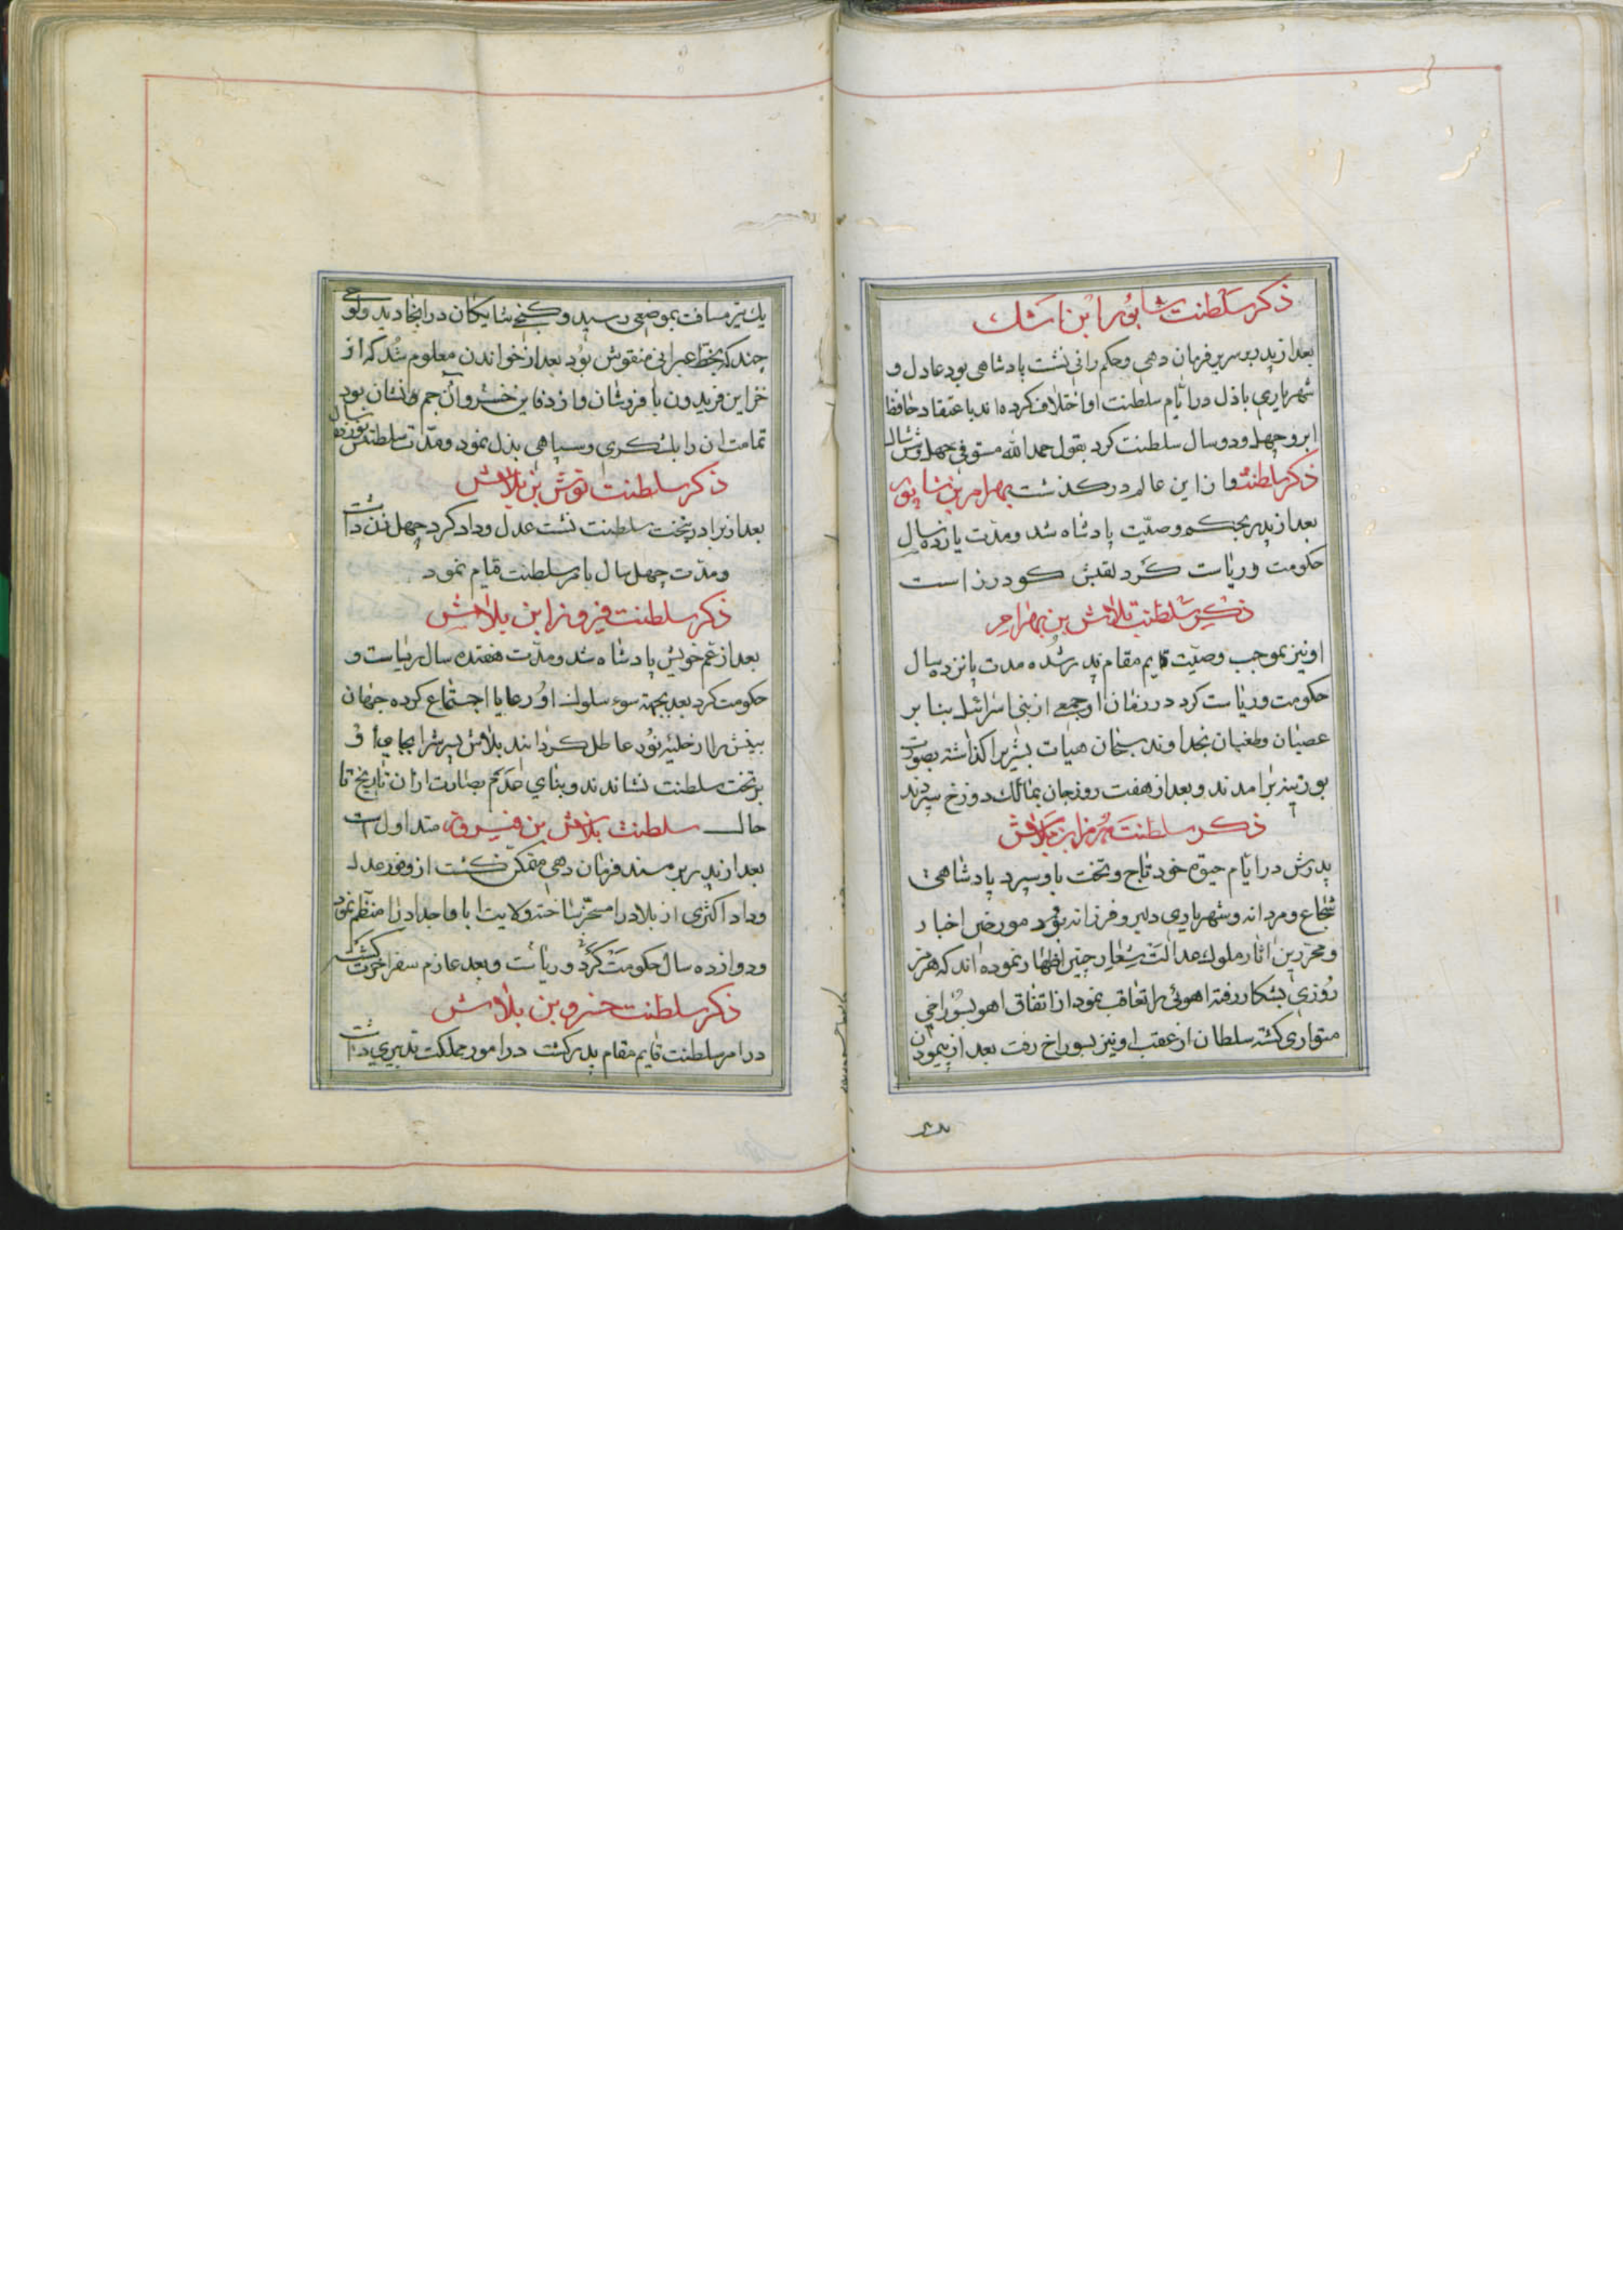 ذکر سلطنت شاپور ابن اشک
بعد از پدر بر سریر فرمان دهی و حکم رانی نشست پادشاهی بود عادل و
شهریاری باذل در ایام سلطنت او اختلاف کرده اند باعتقاد حافظ
ابرو چهل و دو سال سلطنت کرد بقول حمد الله مستوفی چهل و شش سال
ذکر سلطنت و از این عالم در کذشت بهرام بن شاپور
بعد از پدر بحکم وصیّت پادشاه شد و مدّت یازده سال
حکومت و ریاست کرد لقبش کودرز است
ذکر سلطنت بلاش بن بهرام
او نیز بموجب وصیّت قایم مقام پدر شده مدت پانزده سال
حکومت و ریاست کرد در زمان او جمعی از بنی اسرائیل بنا بر
عصیان و طغیان بخداوند سبحان هیات بشر را کذاشته بصورت
بوزینه برامدند و بعد از هفت روز جان بمالک دوزخ سپردند
ذکر سلطنت هرمز ابن بلاش
پدرش در ایّام حیوة خود تاج و تخت باو سپرد پادشاهی
شجاع و مردانه و شهریاری دلیر و فرزانه بود مورخین اخبار
و محررین اثار ملوک عدالت شعار چنین اظهار نموده اند که هرمز
روزی بشکار رفته اهوئی را تعاقب نمود از اتفاق اهو بسوراخی
متواری کشته سلطان از عقب او نیز بسوراخ رفت بعد از پیمودن
یک تیر مسافت بموضعی رسید و کنجی شایکان در انجا دید و لوحی
چند که بخط عبرانی منقوش بود بعد از خواندن معلوم شد که از
خزاین فریدون با فر و شان و از دفاین خسروان جم نشان بود
تمامت ان را بلشکری و سپاهی بذل نمود و مدّت سلطنتش نوزده سال
ذکر سلطنت نوش بن بلاش
بعد از برادر بتخت سلطنت نشست عدل و داد کرد چهل زن داشت
و مدّت چهل سال بامر سلطنت قیام نمود
ذکر سلطنت فیروز ابن بلاش
بعد از عم خویش پادشاه شد و مدّت هفتده سال ریاست و
حکومت کرد بعد بجهة سوء سلوک او رعایا اجتماع کرده جهان
بینش را از حلیه نور عاطل کردانیدند بلاش پسرش را بجای او
بر تخت سلطنت نشاندند و بنای بصارت از آن تاریخ تا
حال سلطنت بلاش بن فیروز متداول است
بعد از پدر بر مسند فرمان دهی متمکن کشت از وفور عدل
و داد اکثری از بلاد را مسخّر ساخته ولایت ابا و اجداد را منتظم نمود
و دوازده سال حکومت کرد و ریاست و بعد عازم سفر اخرت کشت
ذکر سلطنت خسرو بن بلاش
در امر سلطنت قایم مقام پدر کشت در امور مملکت تدبیری داشت